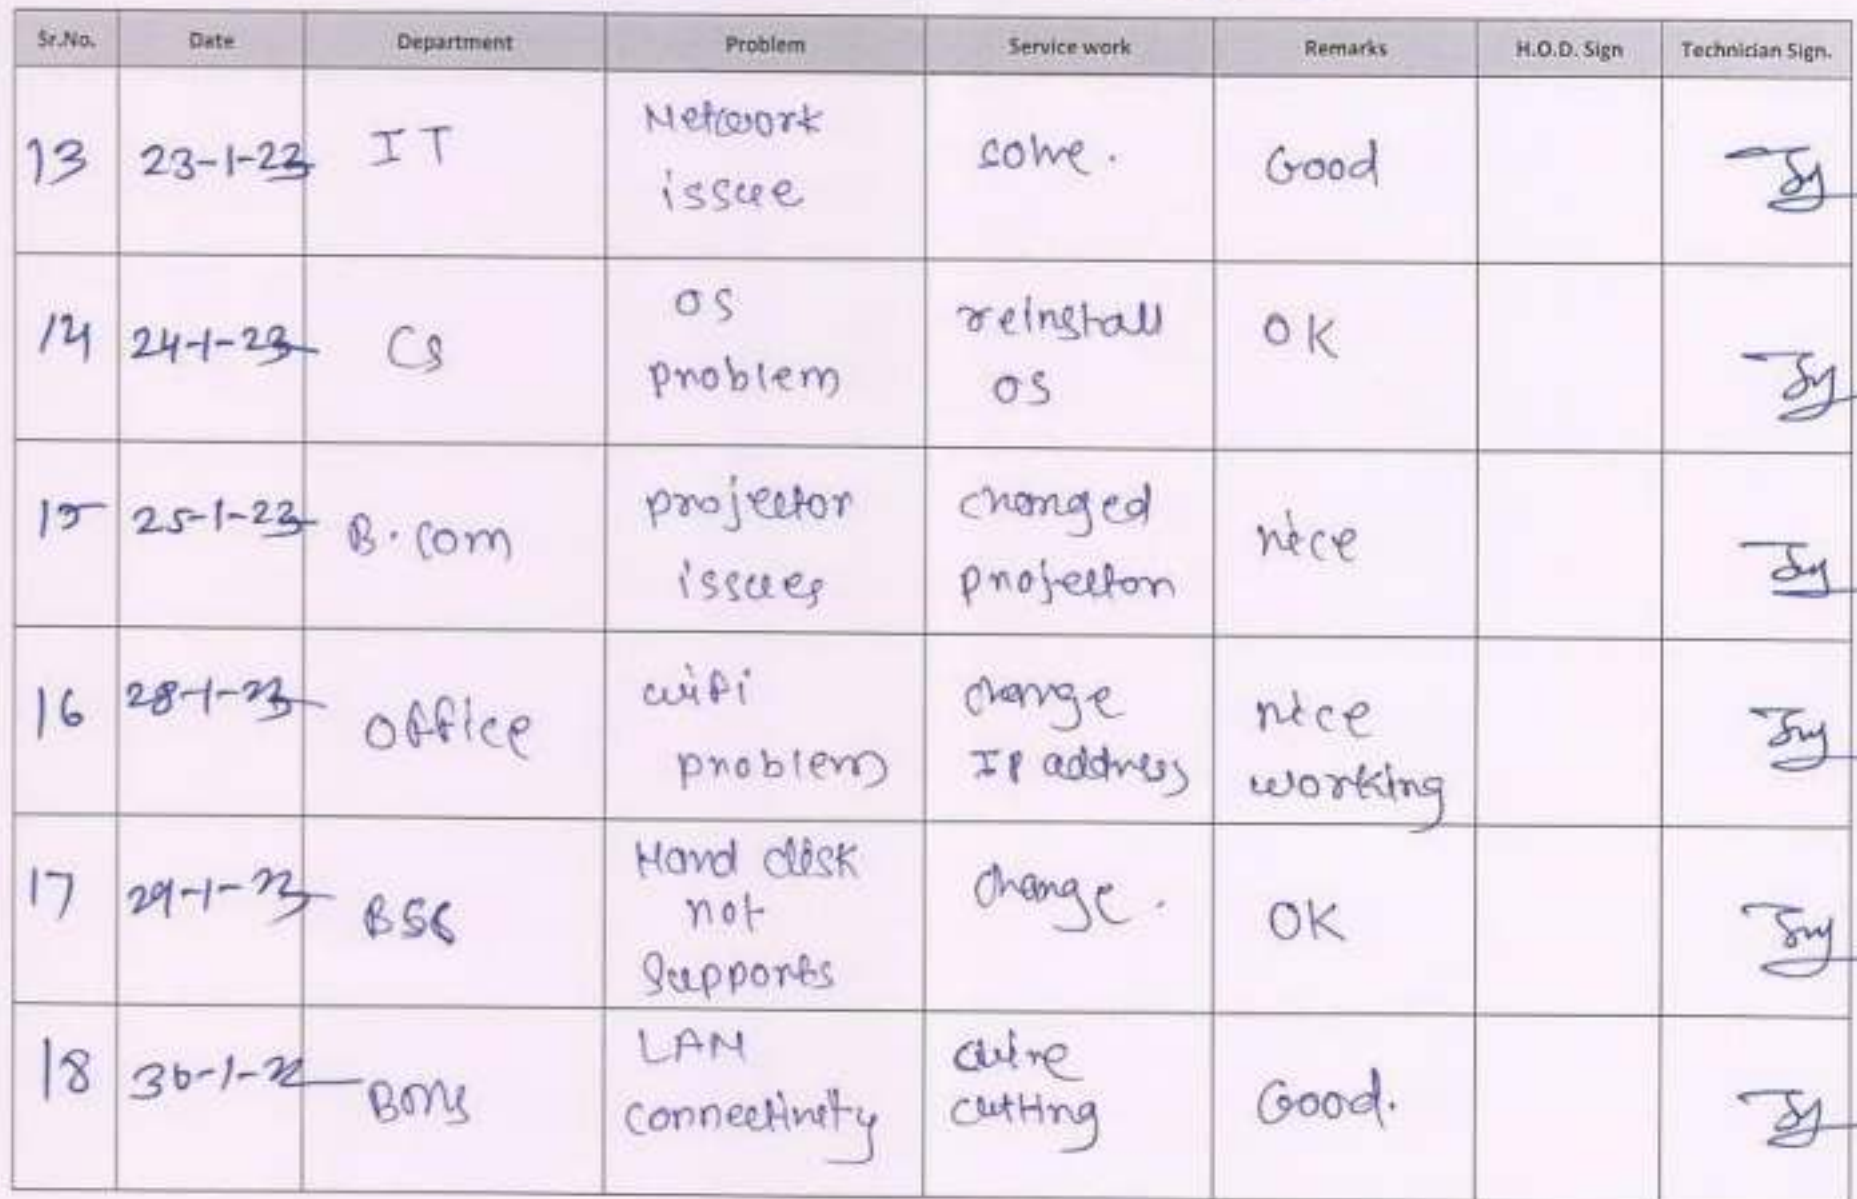 Sr.No. Date Department Problem Service work Remarks H.O.D. Sign Technician Sign.
13 23-1-23 IT Network issue solve. Good
14 24-1-23 CS OS problem reinstall OS OK
15 25-1-23 B.com projector issues changed projector nice
16 28-1-23 office wifi problem change IP address nice working
17 29-1-23 BSC Hard disk not supports change. OK
18 LAN connectivity wire cutting Good.